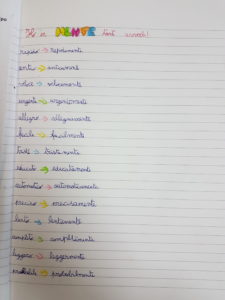 Ho in MENTE tanti avverbi!
rapido → rapidamente
antico → anticamente
veloce → velocemente
urgente → urgentemente
allegro → allegramente
facile → facilmente
triste → tristemente
educato → educatamente
automatico → automaticamente
preciso → precisamente
lento → lentamente
semplice → semplicemente
leggero → leggermente
probabile → probabilmente